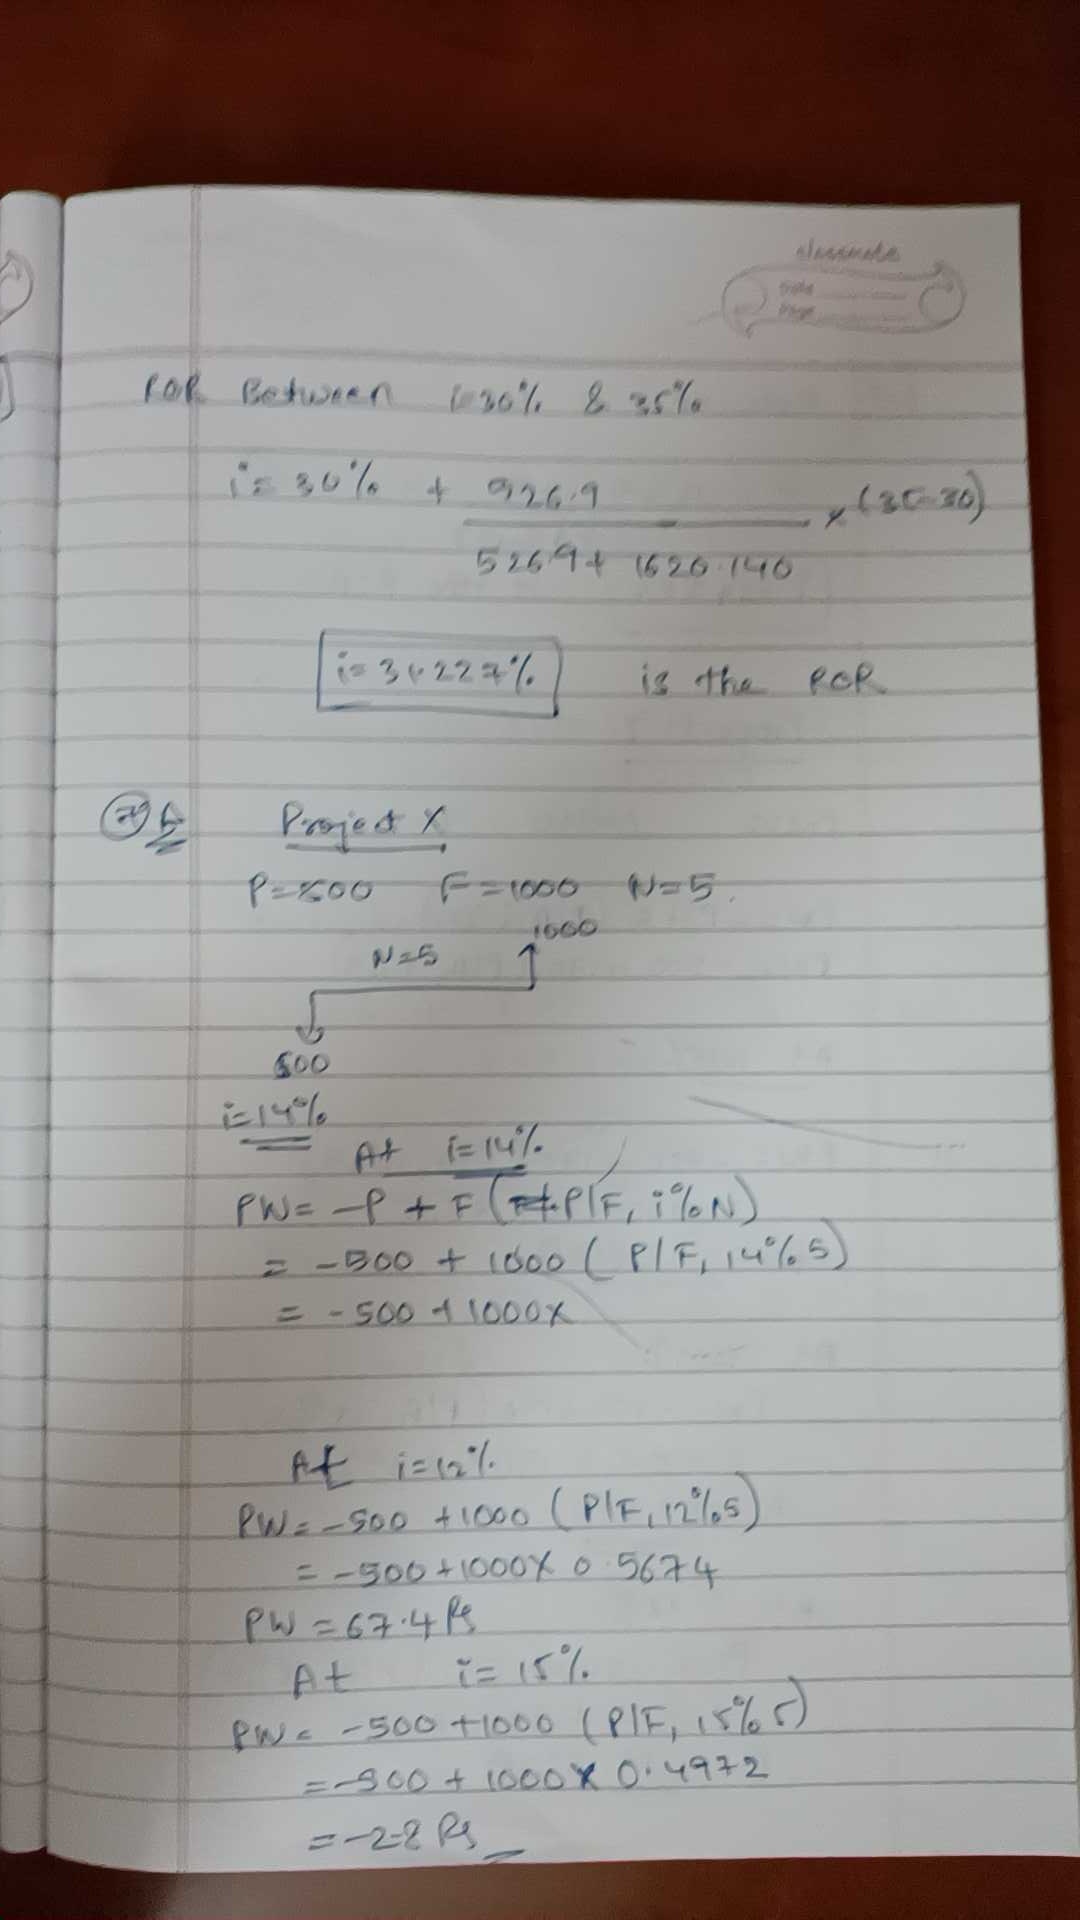 classmate
Date
Page
ROR Between i=30% & 35%
i= 30% + 926.9 / 526.9+ 1620.140 × (35-30)
i= 31.227% is the ROR
7) b Project X
P=500 F=1000 N=5.
1000
N=5
500
i=14%
At i=14%
PW= -P + F (P/F, i%N)
= -500 + 1000 ( P/F, 14%5)
= -500 + 1000x
At i=12%
PW= -500 +1000 ( P/F, 12%5)
= -500+1000X 0.5674
PW = 67.4 Rs
At i= 15%
PW= -500 +1000 (P/F, 15% 5)
=-500 + 1000X 0.4972
=-2.8 Rs